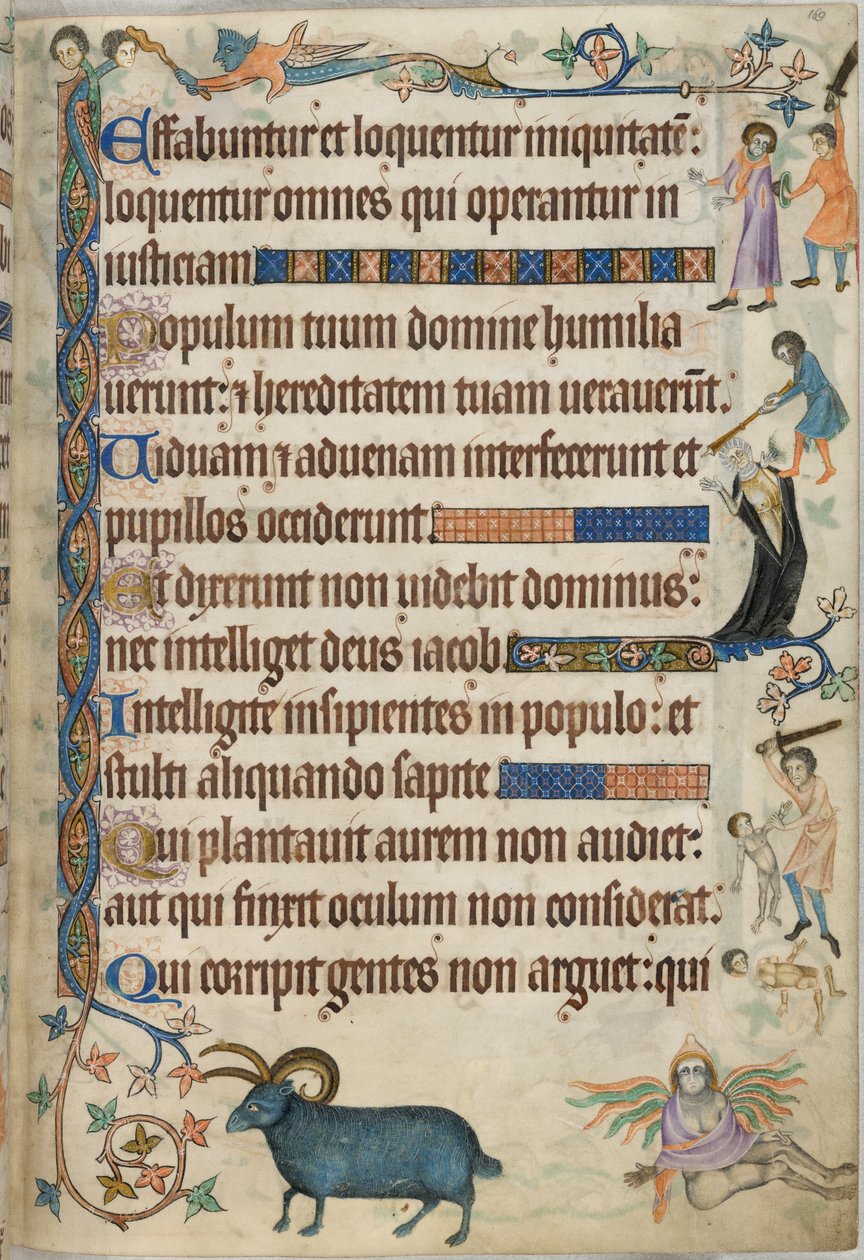 169
Effabuntur et loquentur iniquitatē:
loquentur omnes qui operantur in
iusticiam
Populum tuum domine humilia
uerunt: ⁊ hereditatem tuam uexauerūt.
Uiduam ⁊ aduenam interfecerunt et
pupillos occiderunt.
Et dixerunt non uidebit dominus:
nec intelliget deus iacob.
Intelligite insipientes in populo: et
stulti aliquando sapite
Qui plantauit aurem non audiet:
aut qui finxit oculum non considerat.
Qui corripit gentes non arguet: qui